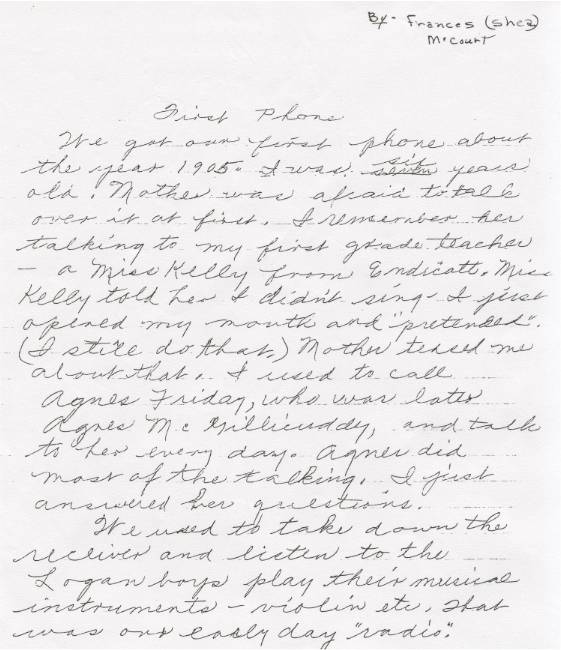 By - Frances (Shea)
McCourt
First Phone
We got our first phone about
the year 1905. I was six
seven years
old. Mother was afraid to talk
over it at first. I remember her
talking to my first grade teacher
- a Miss Kelly from Endicott. Miss
Kelly told her I didn't sing - I just
opened my mouth and "pretended".
(I still do that.) Mother teased me
about that. I used to call
Agnes Friday, who was later
Agnes McGillicuddy, and talk
to her every day. Agnes did
most of the talking. I just
answered her questions.
We used to take down the
receiver and listen to the
Logan boys play their musical
instruments - violin etc. That
was our early day "radio".